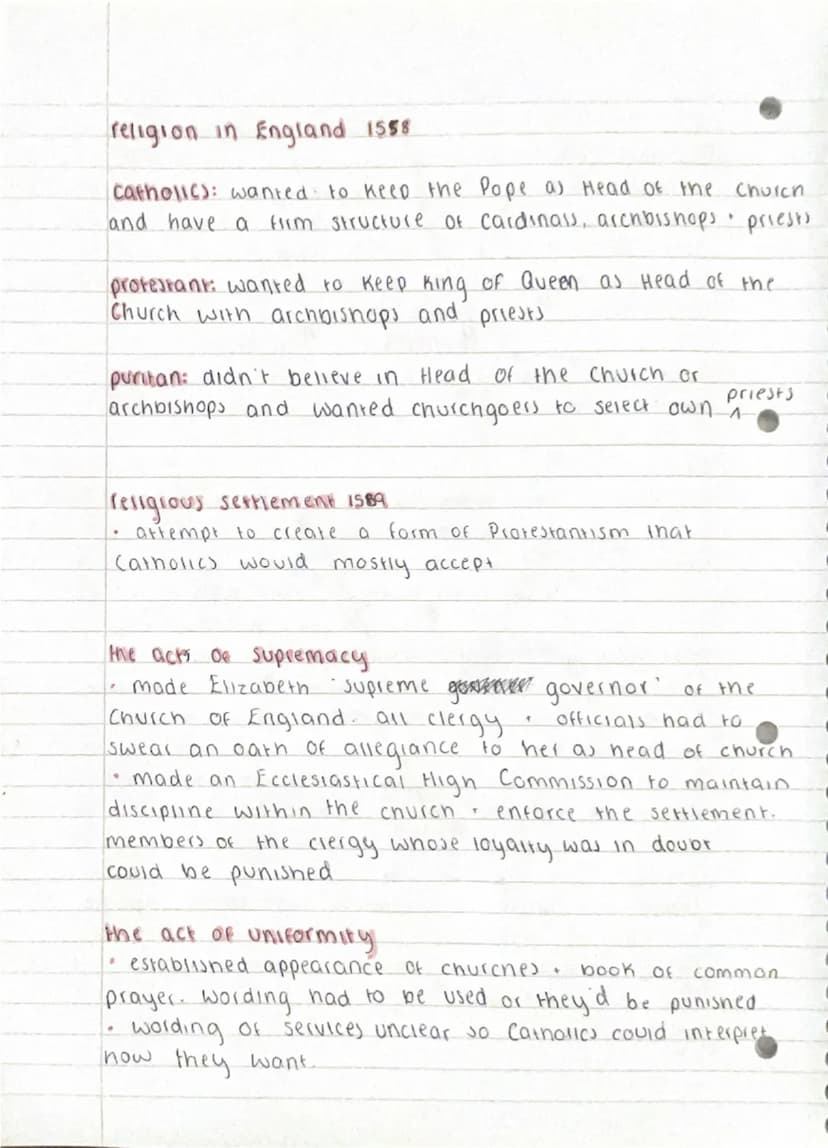 religion in England 1558
Catholics: wanted to keep the Pope as Head of the Church
and have a firm structure of Cardinals, archbishops + priests
protestant: wanted to keep King of Queen as Head of the
Church with archbishops and priests
puritan: didn't believe in Head of the Church or
archbishops and wanted churchgoers to select own ^ priests
religious settlement 1559
• attempt to create a form of Protestantism that
Catholics would mostly accept
the acts of supremacy
• made Elizabeth 'supreme governor' of the
Church of England. all clergy + officials had to
swear an oath of allegiance to her as head of church
• made an Ecclesiastical High Commission to maintain
discipline within the church + enforce the settlement.
members of the clergy whose loyalty was in doubt
could be punished
the act of uniformity
• established appearance of churches + book of common
prayer. wording had to be used or they'd be punished
• wording of services unclear so Catholics could interpret
how they want.